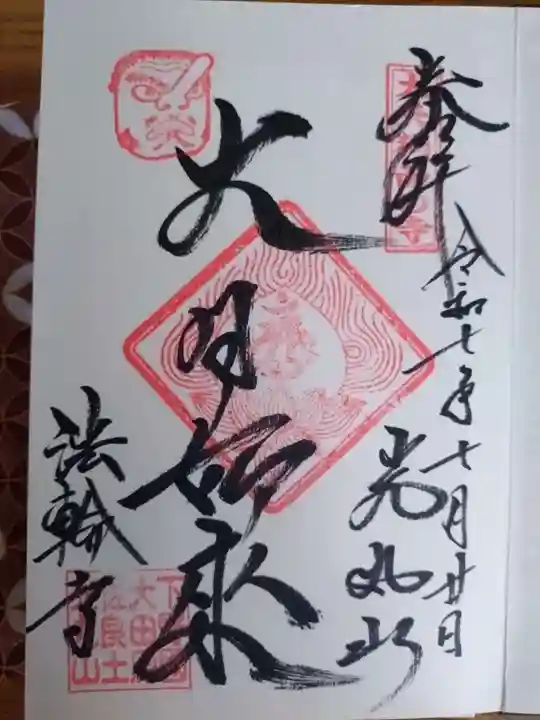 奉拝
令和七年七月廿日
光丸山
大日如来
法輪寺
下野国
大田原
佐良土